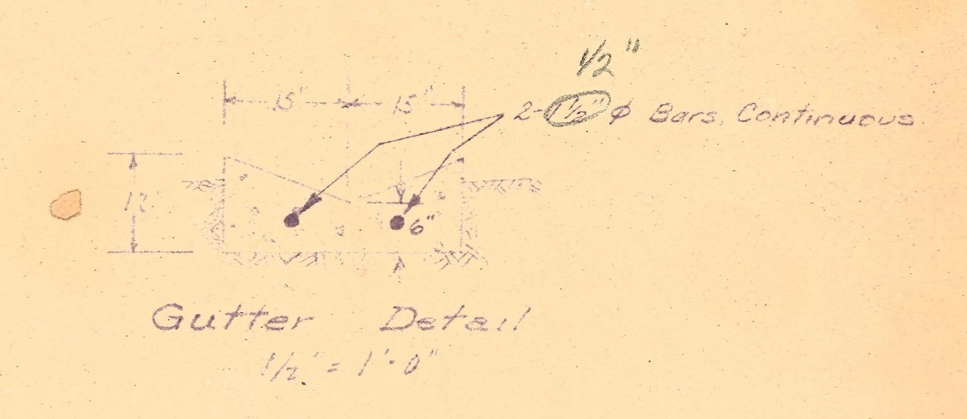 1/2"
15" 15"
2-1 1/2" ϕ Bars, Continuous.
12"
6"
Gutter Detail
1/2" = 1'-0"